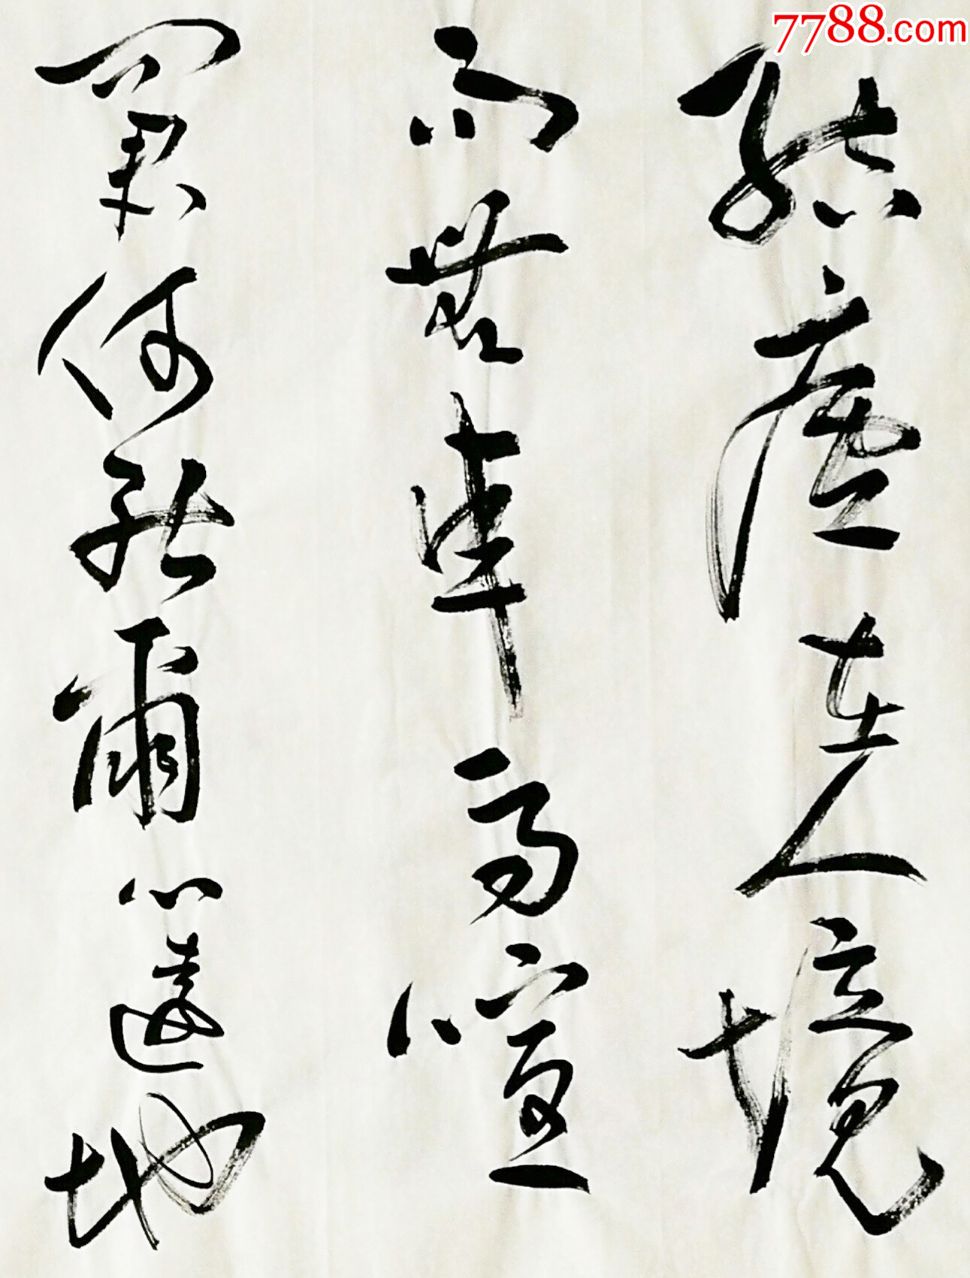 7788.com
結廬在人境
而無車馬喧
問君何能爾心遠地